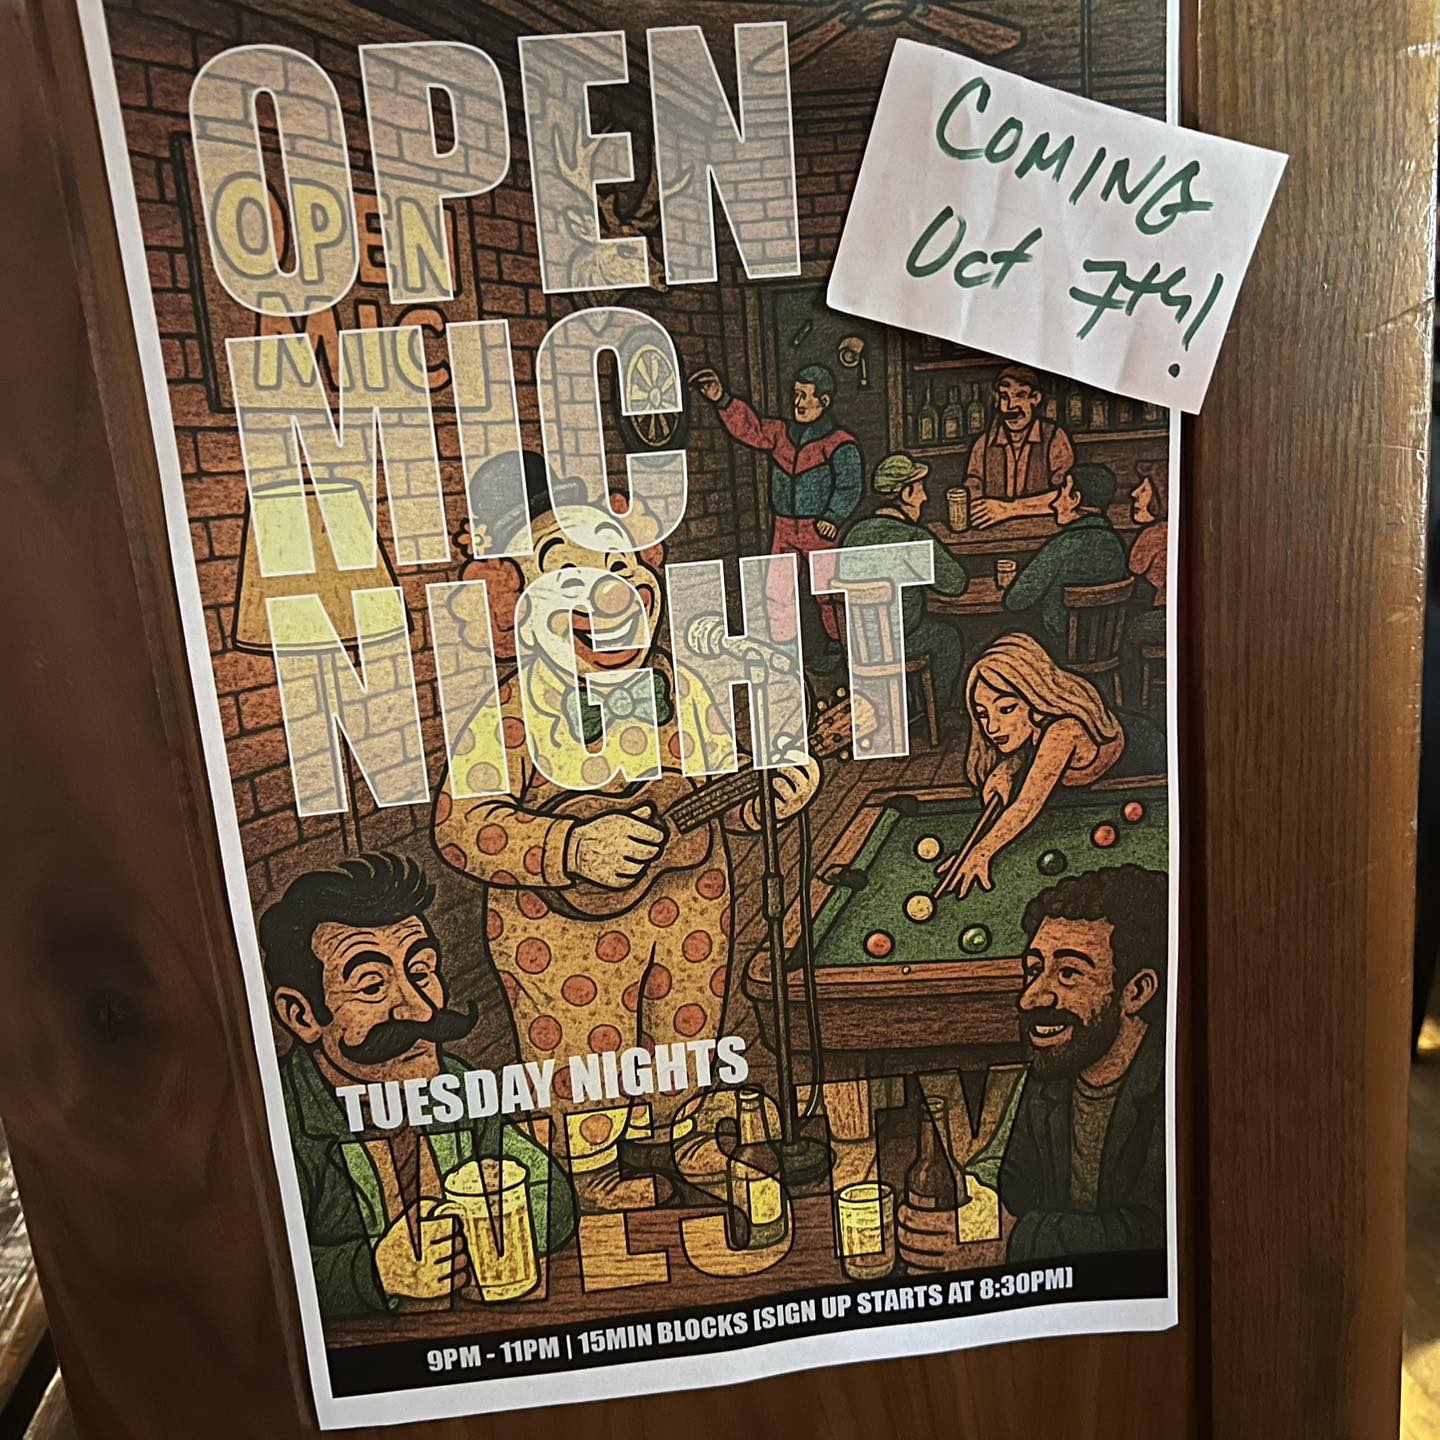 OPEN
MIC
NIGHT
COMING
Oct 7th!
OPEN
MIC
TUESDAY NIGHTS
WESTY
9PM - 11PM | 15MIN BLOCKS [SIGN UP STARTS AT 8:30PM]